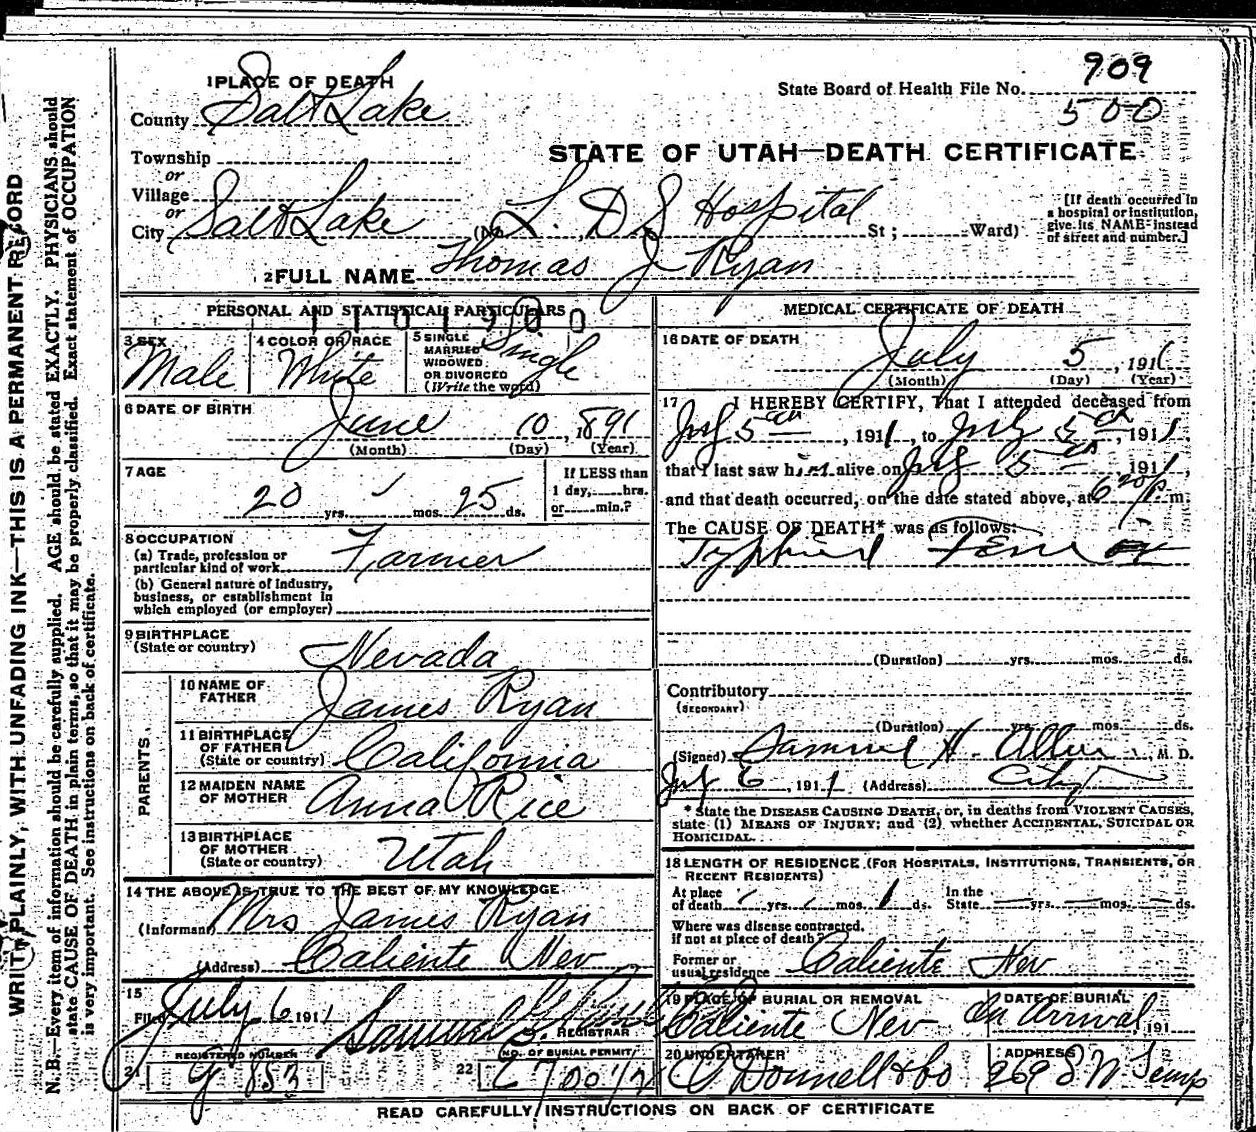 909
500
State Board of Health File No.
1 PLACE OF DEATH
County Salt Lake
STATE OF UTAH—DEATH CERTIFICATE
Township
or
Village
or
City Salt Lake (No. L. D S Hospital St ; Ward)
[If death occurred in
a hospital or institution,
give its NAME instead
of street and number.]
2 FULL NAME Thomas J Ryan
PERSONAL AND STATISTICAL PARTICULARS
1101900
3 SEX Male
4 COLOR OR RACE White
5 SINGLE
MARRIED
WIDOWED
OR DIVORCED
(Write the word) Single
6 DATE OF BIRTH
June 10, 1891
(Month) (Day) (Year)
7 AGE
20 yrs. mos. 25 ds.
If LESS than
1 day, hrs.
or min.?
8 OCCUPATION
(a) Trade, profession or
particular kind of work Farmer
(b) General nature of industry,
business, or establishment in
which employed (or employer)
9 BIRTHPLACE
(State or country) Nevada
PARENTS
10 NAME OF
FATHER James Ryan
11 BIRTHPLACE
OF FATHER
(State or country) California
12 MAIDEN NAME
OF MOTHER Anna Rice
13 BIRTHPLACE
OF MOTHER
(State or country) Utah
14 THE ABOVE IS TRUE TO THE BEST OF MY KNOWLEDGE
(Informant) Mrs James Ryan
(Address) Caliente Nev
15
Filed July 6 1911
REGISTRAR
REGISTERED NUMBER
21 853
NO. OF BURIAL PERMIT
22
MEDICAL CERTIFICATE OF DEATH
16 DATE OF DEATH
July 5, 1911
(Month) (Day) (Year)
17 I HEREBY CERTIFY, That I attended deceased from
July 5th, 1911, to July 5th, 1911
that I last saw him alive on July 5th, 1911,
and that death occurred, on the date stated above, at 6 20 p m.
The CAUSE OF DEATH* was as follows:
Typhoid Fever
(Duration) yrs. mos. ds.
Contributory
(SECONDARY)
(Duration) yrs. mos. ds.
(Signed) Samuel H. Allen, M. D.
July 6, 1911 (Address) City
* State the DISEASE CAUSING DEATH, or, in deaths from VIOLENT CAUSES,
state (1) MEANS OF INJURY; and (2) whether ACCIDENTAL, SUICIDAL OR
HOMICIDAL.
18 LENGTH OF RESIDENCE (FOR HOSPITALS, INSTITUTIONS, TRANSIENTS, OR
RECENT RESIDENTS)
At place
of death yrs. mos. 1 ds.
In the
State yrs. mos. ds.
Where was disease contracted,
if not at place of death?
Former or
usual residence Caliente Nev
19 PLACE OF BURIAL OR REMOVAL
Caliente Nev
DATE OF BURIAL
On Arrival, 191
20 UNDERTAKER
O'Donnell & Co
ADDRESS
269 S W. Temp
READ CAREFULLY INSTRUCTIONS ON BACK OF CERTIFICATE
WRITE PLAINLY, WITH UNFADING INK—THIS IS A PERMANENT RECORD
N. B.—Every item of information should be carefully supplied. AGE should be stated EXACTLY. PHYSICIANS should
state CAUSE OF DEATH in plain terms, so that it may be properly classified. Exact statement of OCCUPATION
is very important. See instructions on back of certificate.